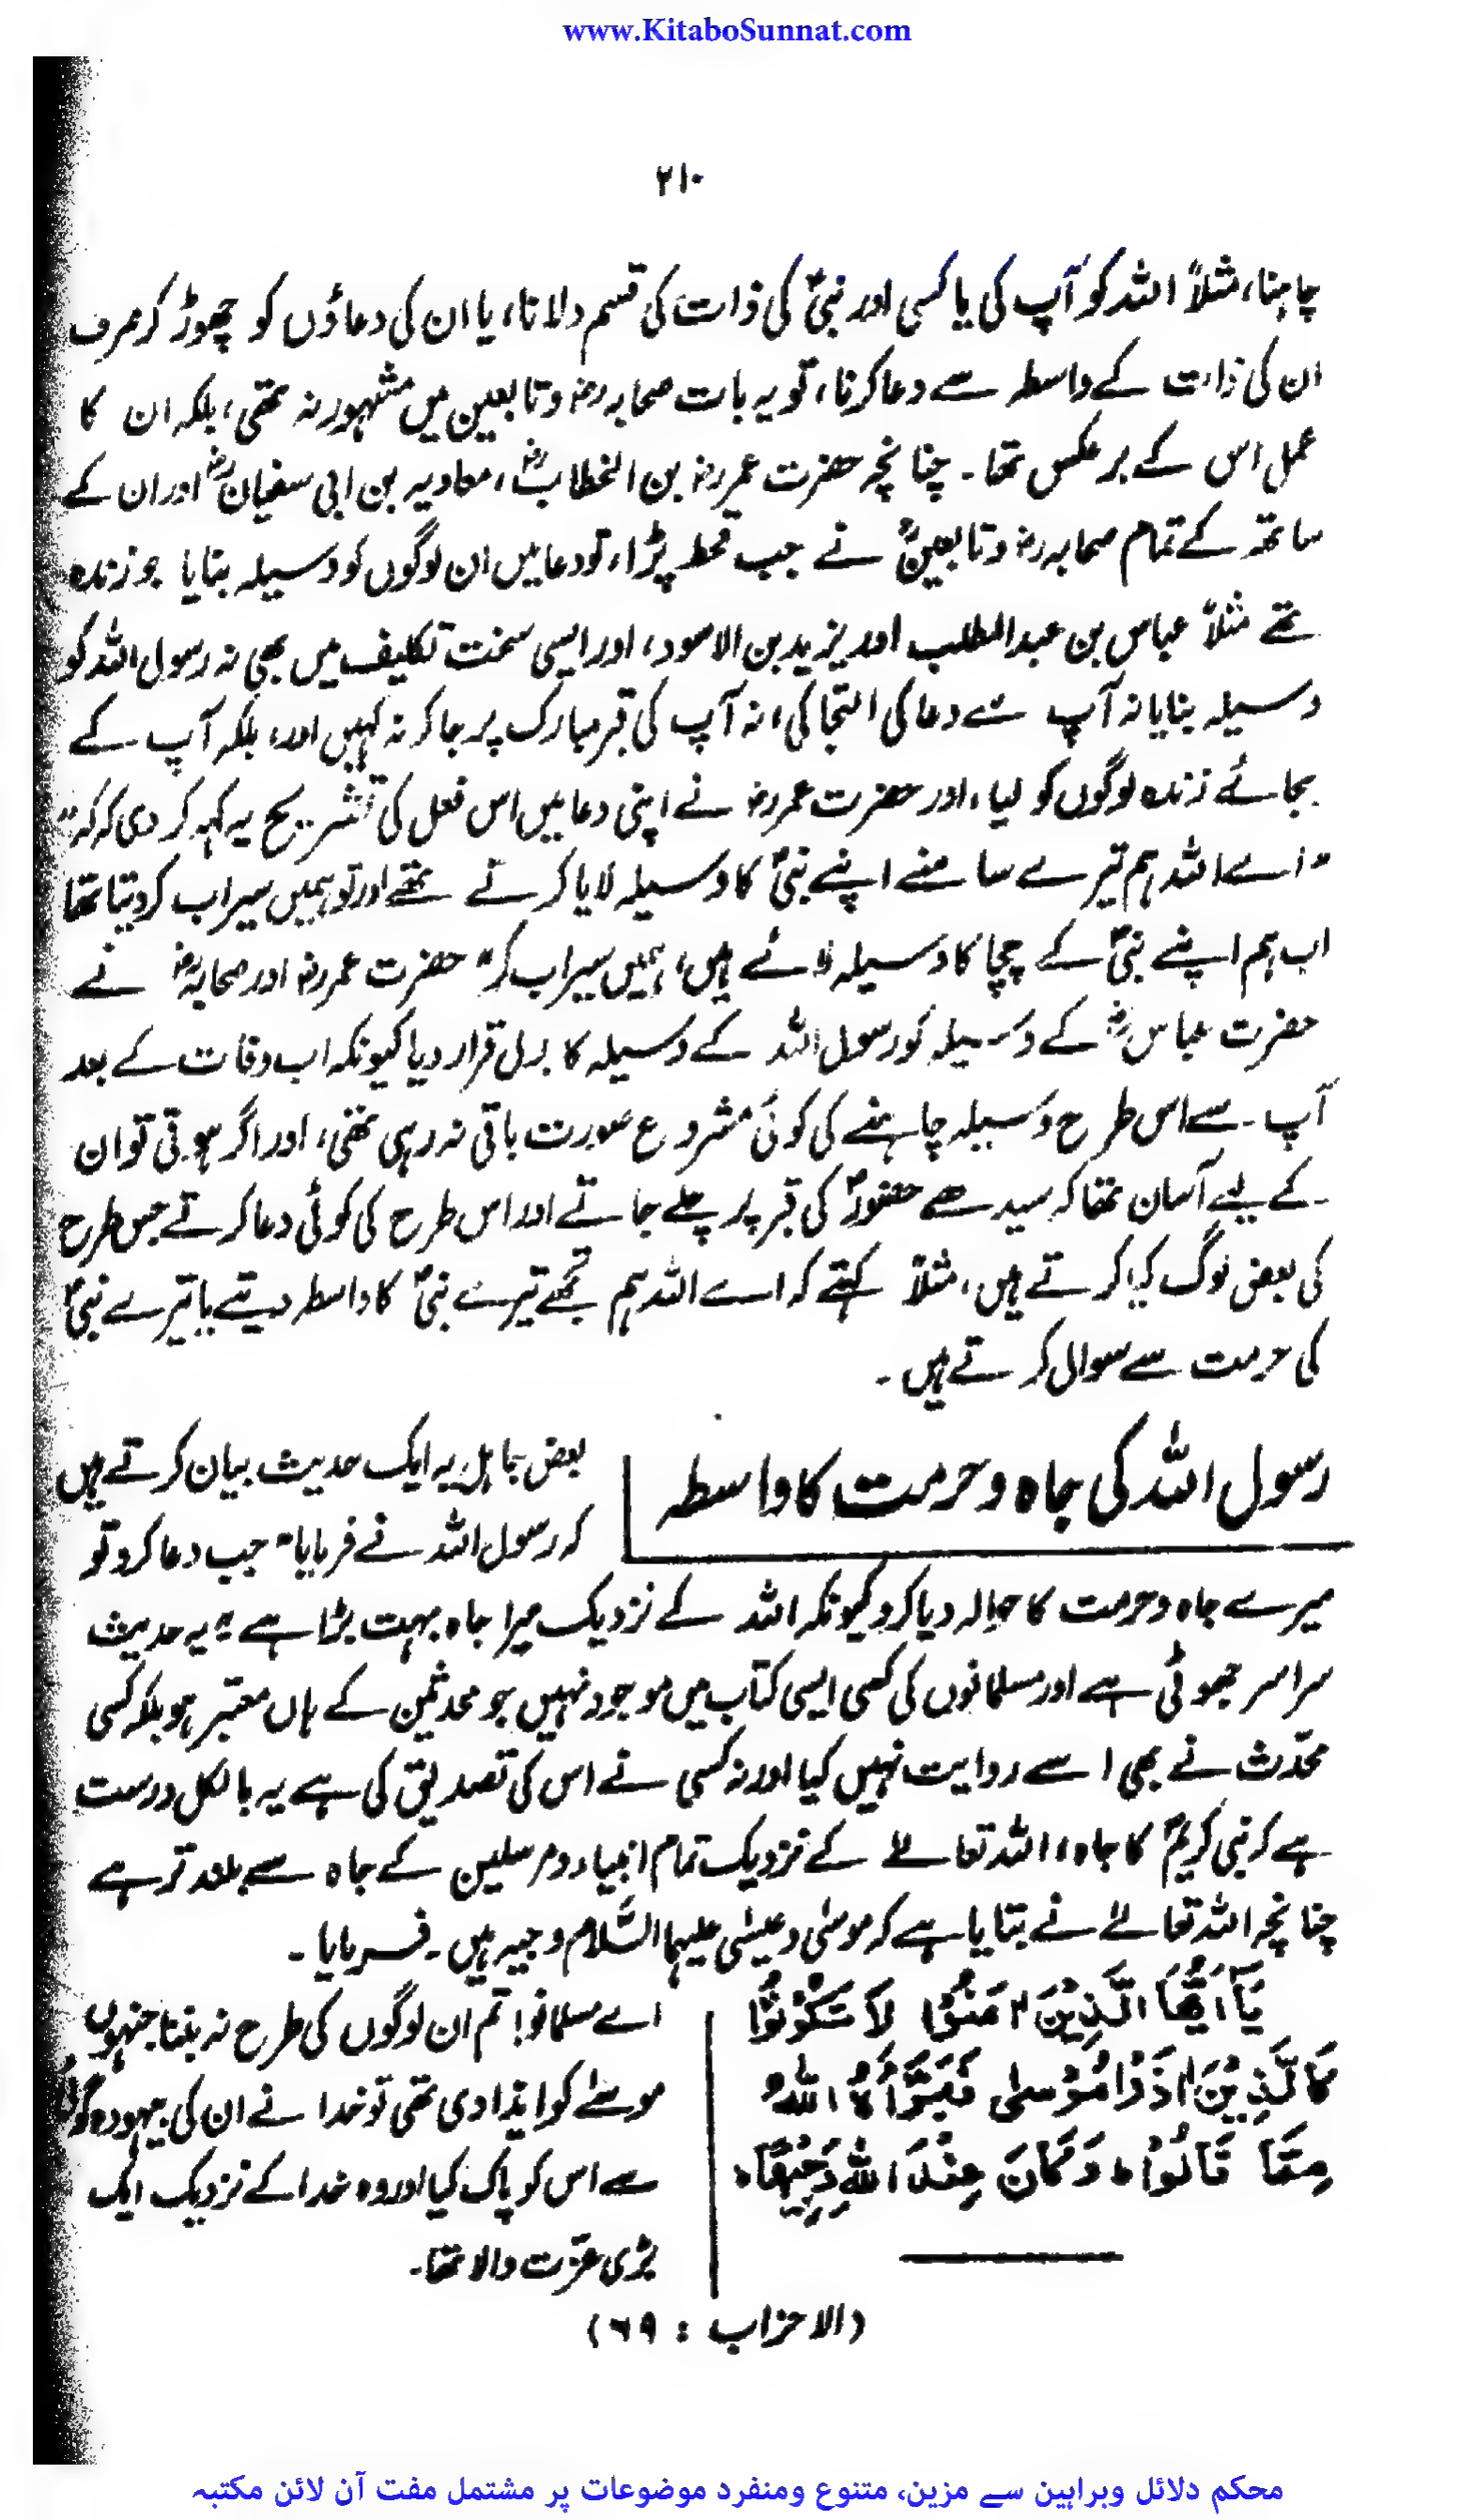 www.KitaboSunnat.com
۲۱۰
چاہنا، مثلاً اللہ کو آپ کی یا کسی اور نبیؐ کی ذات کی قسم دلانا، یا ان کی دعاؤں کو چھوڑ کر صرف
ان کی ذات کے واسطہ سے دعا کرنا، تو یہ بات صحابہ رضؓ و تابعین میں مشہور نہ تھی، بلکہ ان کا
عمل اس کے برعکس تھا۔ چنانچہ حضرت عمر رضؓ بن الخطابؓ، معاویہ بن ابی سفیانؓ اور ان کے
ساتھ کے تمام صحابہ رضؓ و تابعینؒ نے جب قحط پڑا، تو دعا میں ان لوگوں کو وسیلہ بنایا جو زندہ
تھے مثلاً عباس بن عبدالمطلب اور یزید بن الاسود، اور ایسی سخت تکلیف میں بھی نہ رسول اللہ کو
وسیلہ بنایا نہ آپ سے دعا کی التجا کی، نہ آپ کی قبر مبارک پر جا کر نہ کہیں اور، بلکہ آپ کے
بجائے زندہ لوگوں کو لیا، اور حضرت عمر رضؓ نے اپنی دعا میں اس فعل کی تشریح یہ کہہ کر دی کہ کہ"
"اے اللہ ہم تیرے سامنے اپنے نبیؐ کا وسیلہ لایا کرتے تھے اور تو ہمیں سیراب کر دیتا تھا
اب ہم اپنے نبیؐ کے چچا کا وسیلہ لائے ہیں، ہمیں سیراب کر" حضرت عمر رضؓ اور صحابہ رضؓ نے
حضرت عباسؓ کے وسیلہ کو رسول اللہ کے وسیلہ کا بدل قرار دیا کیونکہ اب وفات کے بعد
آپ سے اس طرح وسیلہ چاہنے کی کوئی مشروع صورت باقی نہ رہی تھی، اور اگر ہوتی تو ان
کے لیے آسان تھا کہ سیدھے حضورؐ کی قبر پر چلے جاتے اور اس طرح کی کوئی دعا کرتے جس طرح
کی بعض لوگ کیا کرتے ہیں، مثلاً کہتے کہ اے اللہ ہم تجھے تیرے نبیؐ کا واسطہ دیتے یا تیرے نبیؐ
کی حرمت سے سوال کرتے ہیں۔
رسول اللہ کی جاہ و حرمت کا واسطہ
بعض جاہل یہ ایک حدیث بیان کرتے ہیں
کہ رسول اللہ نے فرمایا" جب دعا کرو تو
میرے جاہ و حرمت کا حوالہ دیا کرو کیونکہ اللہ کے نزدیک میرا جاہ بہت بڑا ہے" یہ حدیث
سراسر جھوٹی ہے اور مسلمانوں کی کسی ایسی کتاب میں موجود نہیں جو محدثین کے ہاں معتبر ہو بلکہ کسی
محدّث نے بھی اسے روایت نہیں کیا اور نہ کسی نے اس کی تصدیق کی ہے یہ بالکل درست
ہے کہ نبی کریمؐ کا جاہ، اللہ تعالےٰ کے نزدیک تمام انبیاء و مرسلین کے جاہ سے بلند تر ہے
چنانچہ اللہ تعالےٰ نے بتایا ہے کہ موسیٰ و عیسٰی علیہما السّلام وجیہ ہیں۔ فرمایا۔
یَآ اَیُّھَا الَّذِیْنَ اٰمَنُوْا لَا تَکُوْنُوْا
کَالَّذِیْنَ اٰذَوْا مُوْسٰی فَبَرَّاَہُ اللہُ
مِمَّا قَالُوْا ؕ وَکَانَ عِنْدَ اللہِ وَجِیْھًا ؕ
اے مسلمانو! تم ان لوگوں کی طرح نہ بننا جنہوں
موسےٰ کو ایذا دی تھی تو خدا نے ان کی بیہودہ گوئی
سے اس کو پاک کیا اور وہ خدا کے نزدیک ایک
بڑی عزّت والا تھا۔
(الاحزاب : ۶۹)
محکم دلائل وبراہین سے مزین، متنوع ومنفرد موضوعات پر مشتمل مفت آن لائن مکتبہ